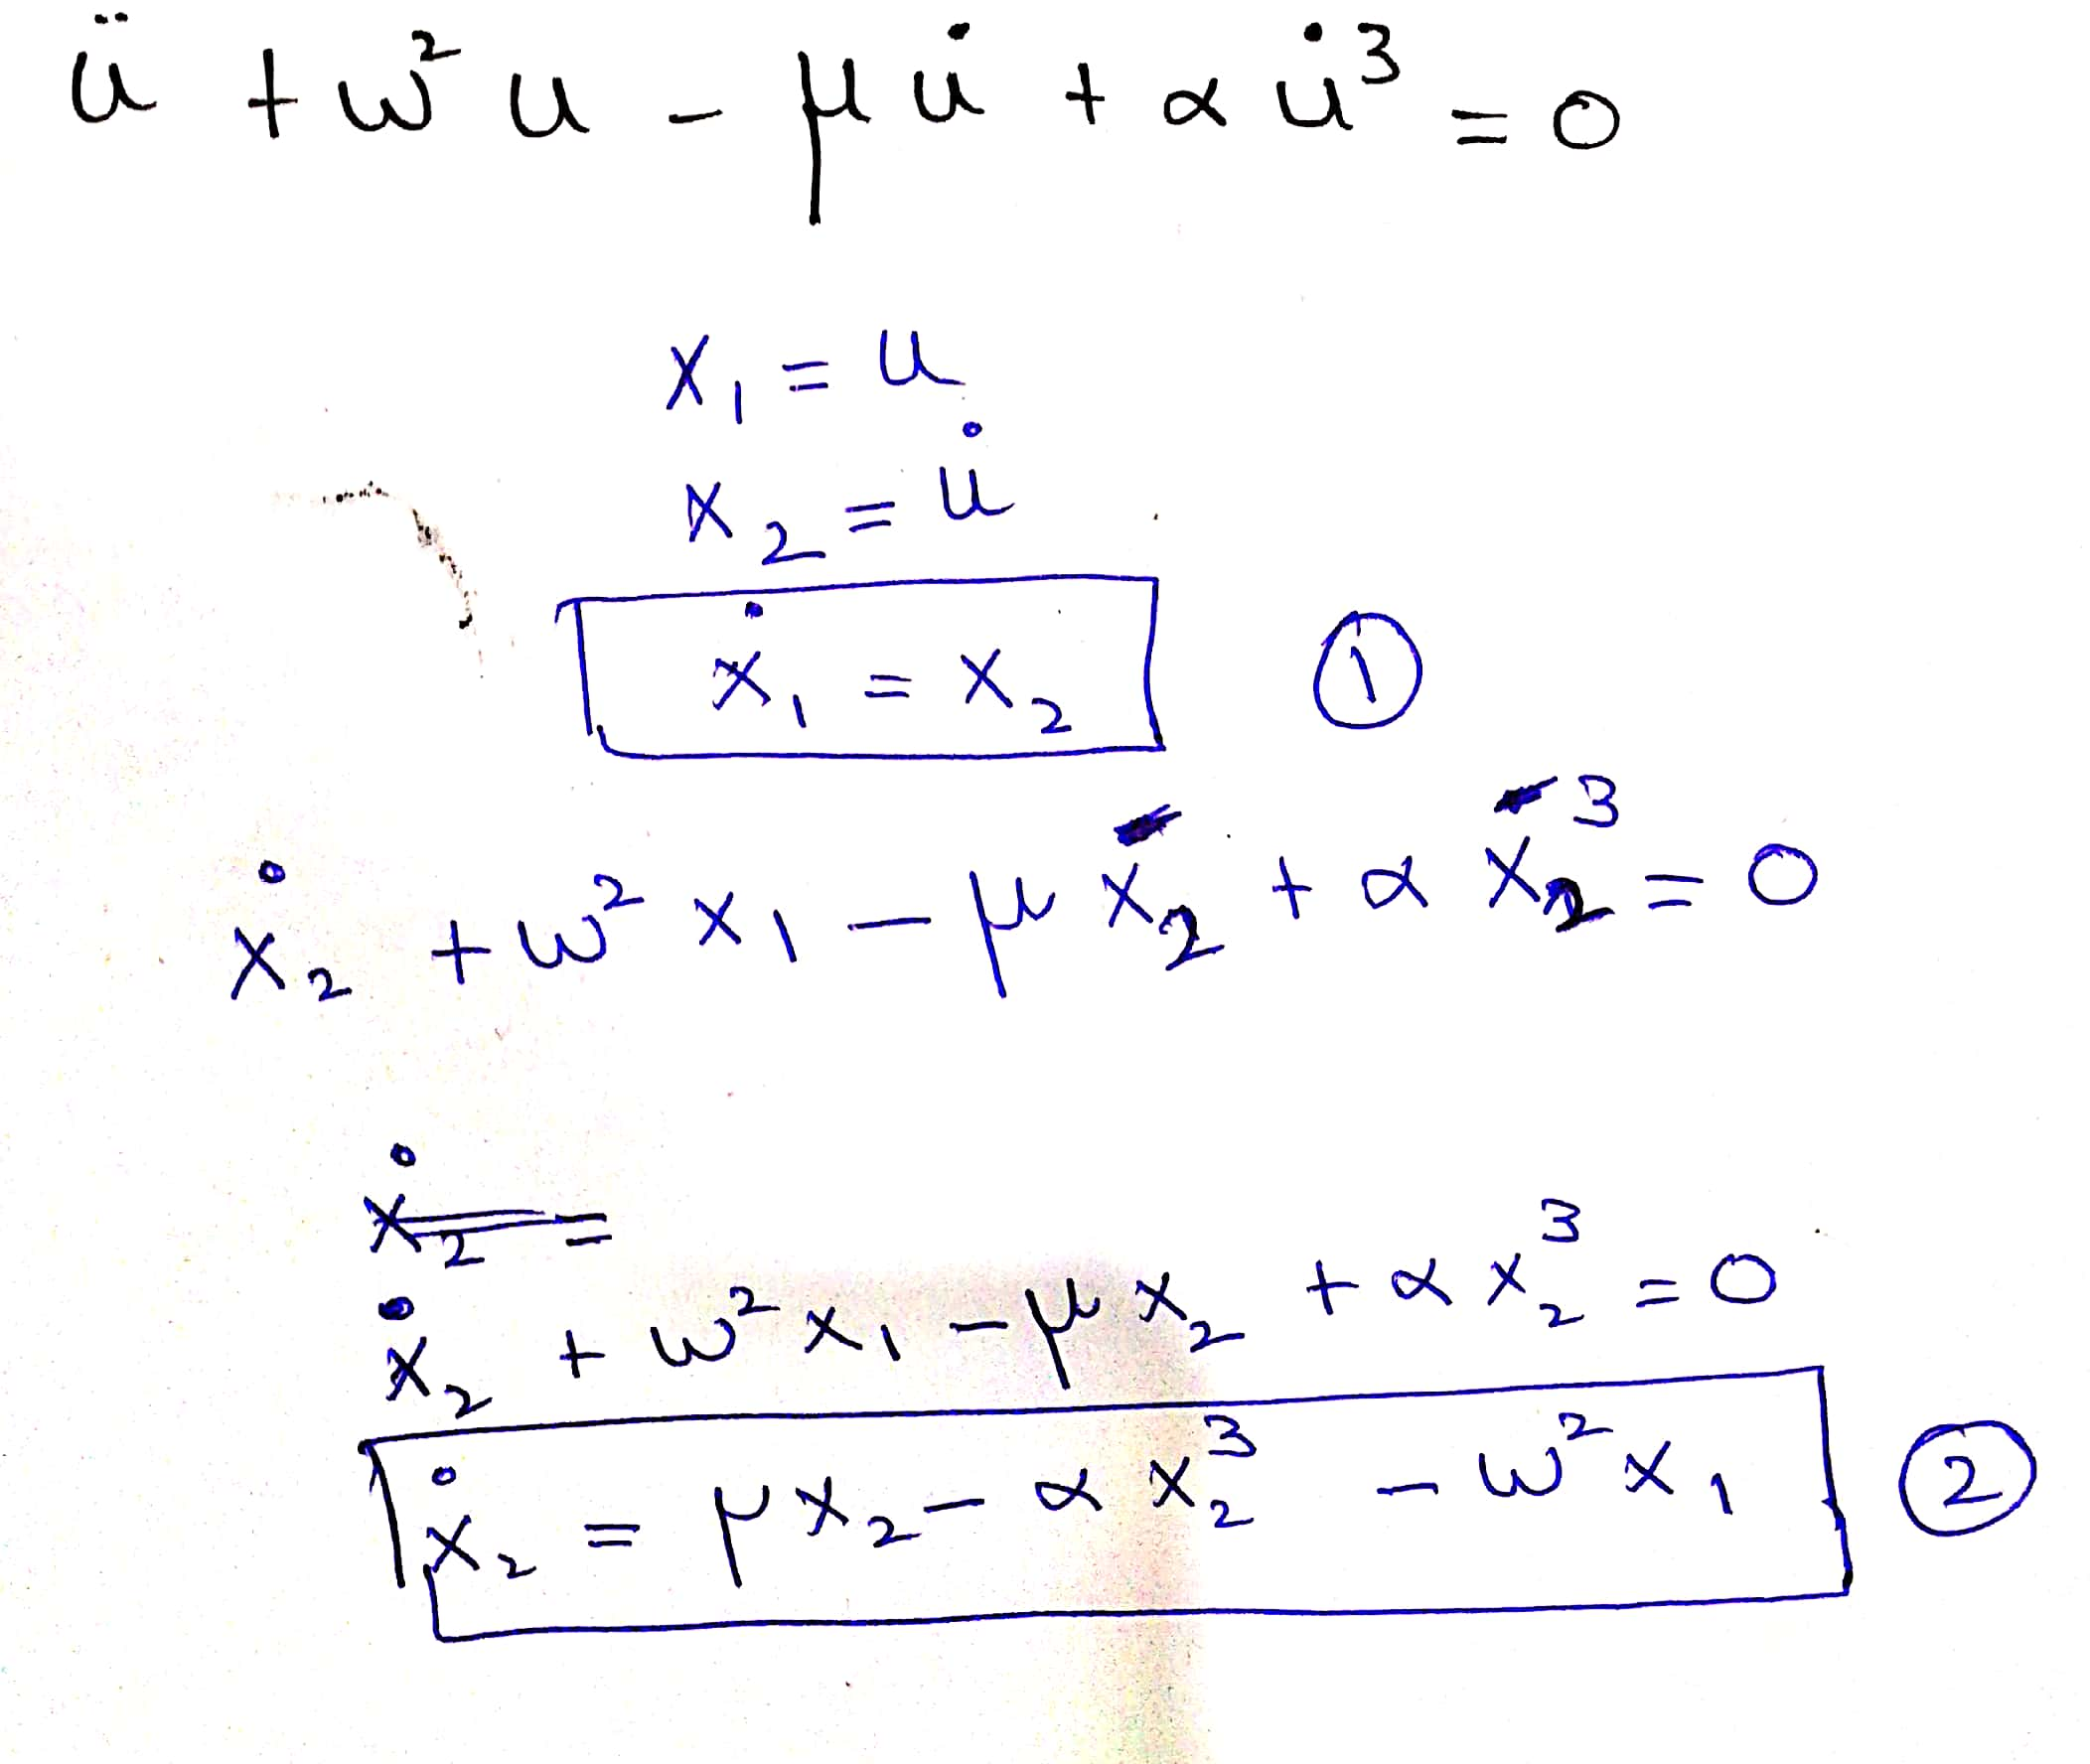 ü + ω² u - μ u̇ + α u̇³ = 0
x₁ = u
x₂ = u̇
ẋ₁ = x₂ ①
ẋ₂ + ω² x₁ - μ x₂ + α x₂³ = 0
ẋ₂ =
ẋ₂ + ω² x₁ - μ x₂ + α x₂³ = 0
ẋ₂ = μ x₂ - α x₂³ - ω² x₁ ②